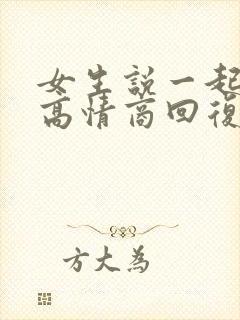 女生說一起
高情商回復
方大為